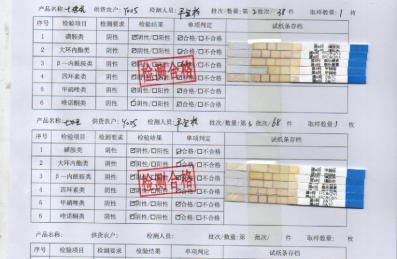 产品名称: 供货农户: Y005 检测人员: 批次/数量: 第 2 批次/ 38 件 取样数量 1 枚
序号 检验项目 检测要求 检验结果 单项判定 试纸条存档
1 磺胺类 阴性 ☑阴性/□阳性 ☑合格/□不合格
2 大环内酯类 阴性 ☑阴性/□阳性 ☑合格/□不合格
3 β-内酰胺类 阴性 ☑阴性/□阳性 ☑合格/□不合格
4 四环素类 阴性 ☑阴性/□阳性 ☑合格/□不合格
5 甲硝唑类 阴性 ☑阴性/□阳性 ☑合格/□不合格
6 喹诺酮类 阴性 ☑阴性/□阳性 ☑合格/□不合格
检测合格
产品名称: 供货农户: Y005 检测人员: 批次/数量: 第 批次/ 68 件 取样数量 枚
序号 检验项目 检测要求 检验结果 单项判定 试纸条存档
1 磺胺类 阴性 ☑阴性/□阳性 ☑合格/□不合格
2 大环内酯类 阴性 ☑阴性/□阳性 ☑合格/□不合格
3 β-内酰胺类 阴性 ☑阴性/□阳性 ☑合格/□不合格
4 四环素类 阴性 ☑阴性/□阳性 ☑合格/□不合格
5 甲硝唑类 阴性 ☑阴性/□阳性 ☑合格/□不合格
6 喹诺酮类 阴性 ☑阴性/□阳性 ☑合格/□不合格
检测合格
产品名称: 供货农户: 检测人员: 批次/数量: 第 批次/ 件 取样数量: 枚
序号 检验项目 检测要求 检验结果 单项判定 试纸条存档